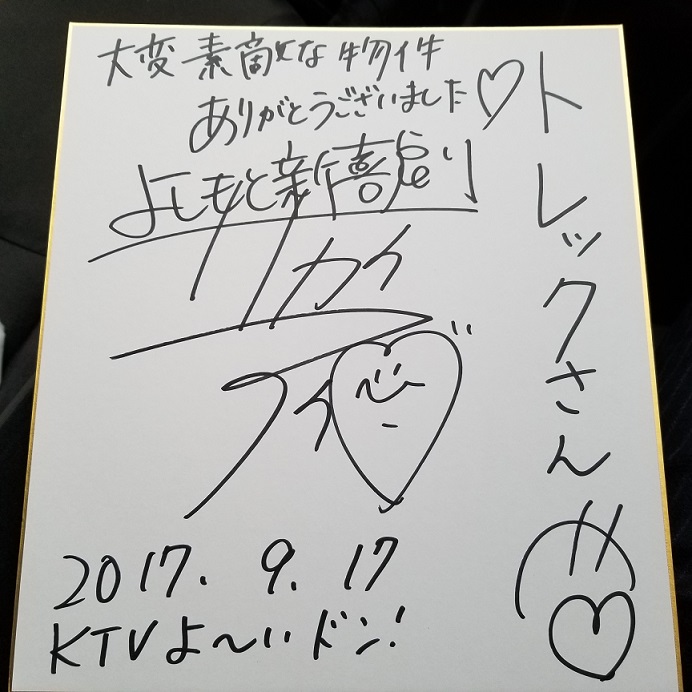 トレックさん
大変素敵な物件
ありがとうございました♡
よしもと新喜劇
2017. 9. 17
KTVよ〜いドン!